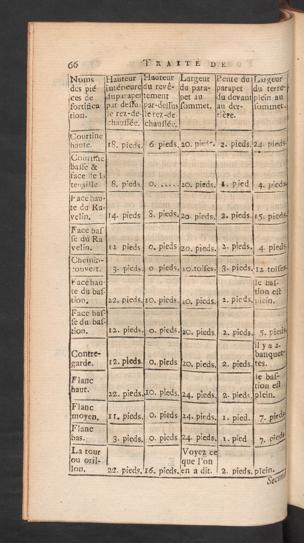 66 TRAITÉ DE
Noms des piéces de fortification. Hauteur intérieure du parapet par dessus le rez-de-chaussée. Hauteur du revêtement par-dessus le rez-de-chaussée. Largeur du parapet au sommet. Pente du parapet du devant au derriére. Largeur du terre-plein au sommet.
Courtine haute. 18. pieds. 6 pieds. 20. pieds. 2. pieds. 24. pieds.
Courtine basse & face de la tenaille 8. pieds. 0...... 20. pieds. 1. pied 4. pieds.
Face haute du Ravelin. 14. pieds 8. pieds. 20 pieds. 2. pieds. 15. pieds.
Face basse du Ravelin. 12 pieds 0. pieds. 20. pieds. 2. pieds. 4 pieds.
Chemin-couvert. 3. pieds 0 pieds. 10. toises. 3. pieds. 12 toises.
Face haute du bastion. 22. pieds. 10. pieds. 20. pieds. 2. pieds. le bastion est plein.
Face basse du bastion. 12. pieds. 0. pieds. 20. pieds. 2. pieds. 5. pieds.
Contre-garde. 12. pieds. 0. pieds. 20. pieds. 2. pieds. il y a 2. banquettes.
Flanc haut. 22. pieds. 10. pieds. 24. pieds. 2. pieds. le bastion est plein.
Flanc moyen. 11. pieds. 0. pieds 24. pieds. 1. pied. 7. pieds.
Flanc bas. 3. pieds. 0. pieds 24. pieds. 1. pied 7. pieds.
La tour ou orillon. 22. pieds. 16. pieds. Voyez ce que l'on en a dit. 2. pieds. plein.